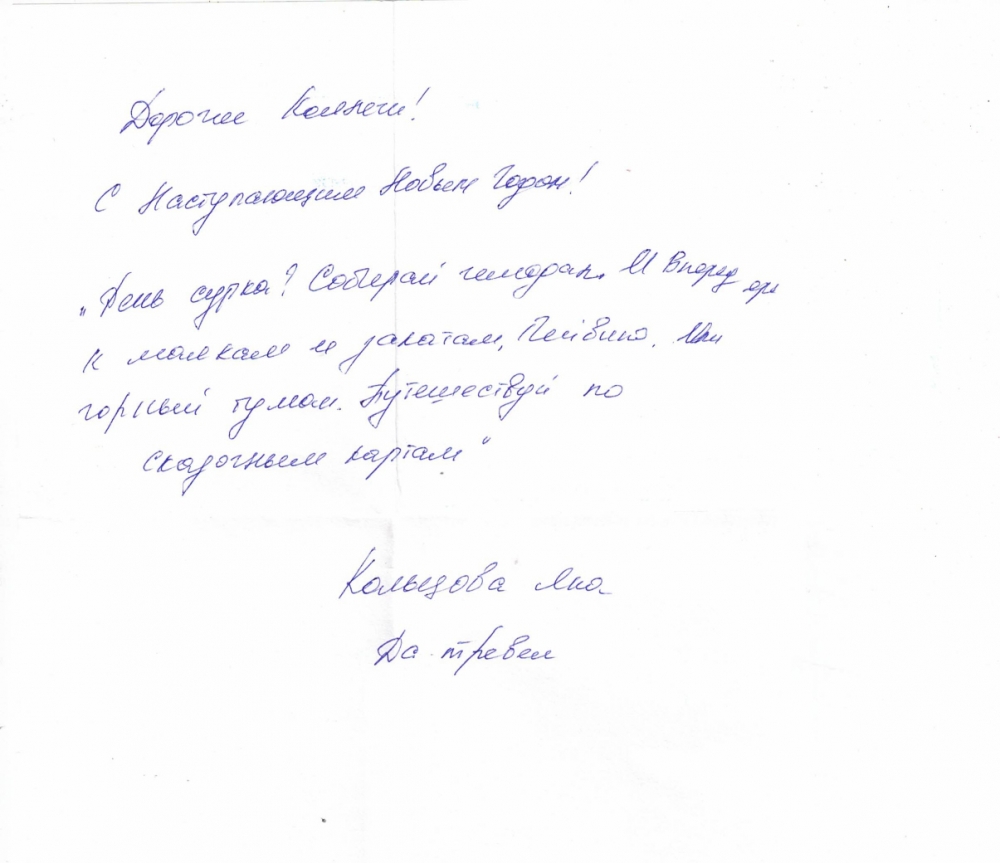 Дорогие Коллеги!
С Наступающим Новым Годом!
„День сурка? Собирай чемодан. И Вперед
к маякам и закатам, Пей вино, Или
горный туман. Путешествуй по
сказочным картам"
Кольцова Яна
Да тревел